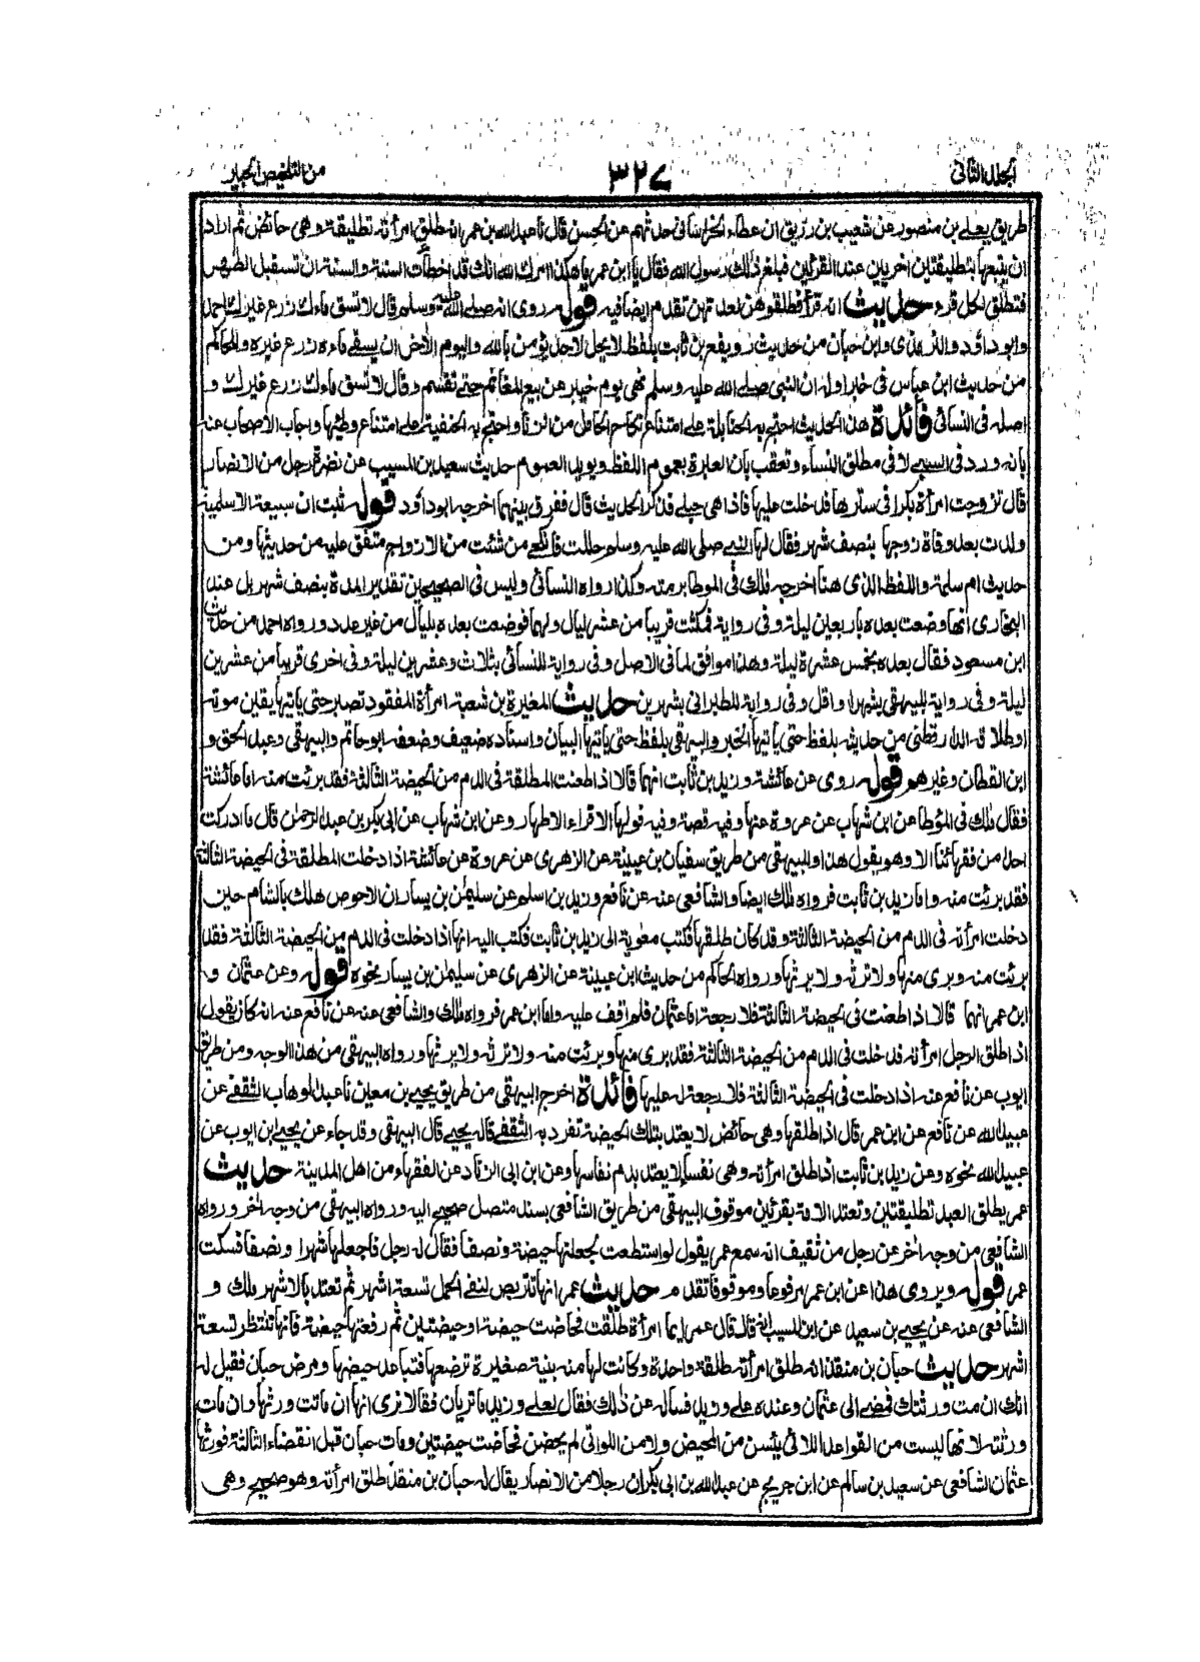 المجلد الثانى
٣٢٧
من التلخيص الحبير
طريق يعلى بن منصور عن شعيب بن رزيق ان عطاء الخراسانى حدثهم عن الحسن قال نا عبد الله بن عمر انه طلق امرأته تطليقة وهى حائض ثم اراد
ان يتبعها بتطليقتين اخريين عند القرئين فبلغ ذلك رسول الله فقال يا ابن عمر ما هكذا امرك الله انك قد اخطأت السنة والسنة ان تستقبل الطهر
فتطلق لكل قرء حديث انه قرأ فطلقوهن لعدتهن تقدم ايضا فيه قوله روى انه صلى الله وسلم قال لا تسق ماءك زرع غيرك احمد
وابو داود والترمذى وابن حبان من حديث رويفع بن ثابت بلفظ لا يحل لاحد يؤمن بالله واليوم الاخر ان يسقى ماءه زرع غيره والحاكم
من حديث ابن عباس فى خبر اوله ان النبى صلى الله عليه وسلم نهى يوم خيبر عن بيع المغانم حتى تقسم وقال لا تسق ماءك زرع غيرك و
اصله فى النسائى فائدة هذا الحديث احتج به الحنابلة على امتناع نكاح الحامل من الزنا واحتج به الحنفية على امتناع وطيها واجاب الاصحاب عنه
بانه ورد فى السبى لا فى مطلق النساء وتعقب بان العبرة بعموم اللفظ ويويد العموم حديث سعيد بن المسيب عن نضرة رجل من الانصار
قال تزوجت امرأة بكرا فى سترها فدخلت عليها فاذا هى حبلى فذكر الحديث قال ففرق بينهما اخرجه ابو داود قوله ثبت ان سبيعة الاسلمية
ولدت بعد وفاة زوجها بنصف شهر فقال لها النبى صلى الله عليه وسلم حللت فانكحى من شئت من الازواج متفق عليه من حديثها ومن
حديث ام سلمة واللفظ الذى هنا اخرجه ملك فى الموطا بر منه وكذا رواه النسائى وليس فى الصحيحين تقدير المدة بنصف شهر بل عند
البخارى انها وضعت بعده باربعين ليلة وفى رواية فمكثت قريبا من عشر ليال ولهما فوضعت بعده بليال من غير عدد ورواه احمد من حديث
ابن مسعود فقال بعده بخمس عشرة ليلة وهذا موافق لما فى الاصل وفى رواية للنسائى بثلاث وعشرين ليلة وفى اخرى قريبا من عشرين
ليلة وفى رواية للبيهقى بشهر او اقل وفى رواية للطبرانى بشهرين حديث المغيرة بن شعبة امرأة المفقود تصبر حتى ياتيها يقين موته
او طلاقه الدارقطنى من حديثه بلفظ حتى ياتيها الخبر والبيهقى بلفظ حتى ياتيها البيان واسناده ضعيف وضعفه ابو حاتم والبيهقى وعبد الحق و
ابن القطان وغيرهم قوله روى عن عائشة وزيد بن ثابت انهما قالا اذا طعنت المطلقة فى الدم من الحيضة الثالثة فقد برئت منه اما عائشة
فقال ملك فى الموطا عن ابن شهاب عن عروة عنها وفيه قصة وفيه قولها الاقراء الاطهار وعن ابن شهاب عن ابى بكر بن عبد الرحمن قال ما ادركت
احدا من فقهائنا الا وهو يقول هذا والبيهقى من طريق سفيان بن عيينة عن الزهرى عن عروة عن عائشة اذا دخلت المطلقة فى الحيضة الثالثة
فقد برئت منه واما زيد بن ثابت فرواه ملك ايضا والشافعى عنه عن نافع وزيد بن اسلم عن سليمن بن يسار ان الاحوص هلك بالشام حين
دخلت امرأته فى الدم من الحيضة الثالثة وقد كان طلقها فكتب معوية الى زيد بن ثابت فكتب اليه انها اذا دخلت فى الدم من الحيضة الثالثة فقد
برئت منه وبرى منها ولا ترثه ولا يرثها ورواه الحاكم من حديث ابن عيينة عن الزهرى عن سليمن بن يسار نحوه قوله وعن عثمان و
ابن عمر انهما قالا اذا طعنت فى الحيضة الثالثة فلا رجعة اما عثمان فلم اقف عليه واما ابن عمر فرواه ملك والشافعى عنه عن نافع عنه انه كان يقول
اذا طلق الرجل امرأته فدخلت فى الدم من الحيضة الثالثة فقد برى منها وبرئت منه ولا ترثه ولا يرثها ورواه البيهقى من هذا الوجه ومن طريق
ايوب عن نافع عنه اذا دخلت فى الحيضة الثالثة فلا رجعة له عليها فائدة اخرج البيهقى من طريق يحيى بن معين نا عبد الوهاب الثقفى عن
عبيد الله عن نافع عن ابن عمر قال اذا طلقها وهى حائض لا يعتد بتلك الحيضة تفرد به الثقفى قاله يحيى قال البيهقى وقد جاء عن يحيى ابن ايوب عن
عبيد الله نحوه وعن زيد بن ثابت اذا طلق امرأته وهى نفساء لا يعتد بدم نفاسها وعن ابن ابى الزناد عن الفقهاء من اهل المدينة حديث
عمر يطلق العبد تطليقتين وتعتد الامة بقرئين موقوف البيهقى من طريق الشافعى بسند متصل صحيح اليه ورواه البيهقى من وجه اخر ورواه
الشافعى من وجه اخر عن رجل من ثقيف انه سمع عمر يقول لو استطعت لجعلتها حيضة ونصفا فقال له رجل فاجعلها شهرا ونصفا فسكت
عمر قوله ويروى هذا عن ابن عمر مرفوعا وموقوفا تقدم حديث عمر انها تتربص لنفى الحمل تسعة اشهر ثم تعتد بالاشهر ملك و
الشافعى عنه عن يحيى بن سعيد عن ابن المسيب انه قال قال عمر ايما امرأة طلقت فحاضت حيضة او حيضتين ثم رفعتها حيضة فانها تنتظر تسعة
اشهر حديث حبان بن منقذ انه طلق امرأته طلقة واحدة وكانت لها منه بنية صغيرة ترضعها فتباعد حيضها ومرض حبان فقيل له
انك ان مت ورثتك فمضى الى عثمان وعنده على وزيد فساله عن ذلك فقال لعلى وزيد ما تريان فقالا نرى انها ان ماتت ورثها وان مات
ورثته لانها ليست من القواعد اللائى يئسن من المحيض ولا من اللواتى لم يحضن فحاضت حيضتين ومات حبان قبل انقضاء الثالثة فورثها
عثمان الشافعى عن سعيد بن سالم عن ابن جريج عن عبد الله بن ابى بكر ان رجلا من الانصار يقال له حبان بن منقذ طلق امرأته وهو صحيح وهى